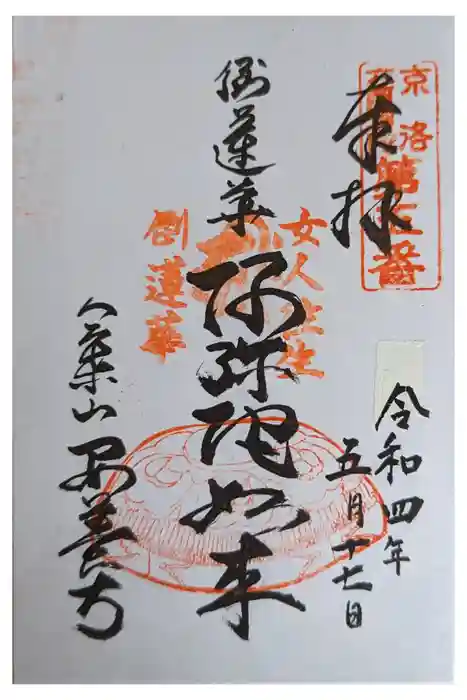 奉拝
京洛
令和四年
五月十七日
女人往生
倒蓮華
阿弥陀如来
倒蓮華
八葉山 安養寺